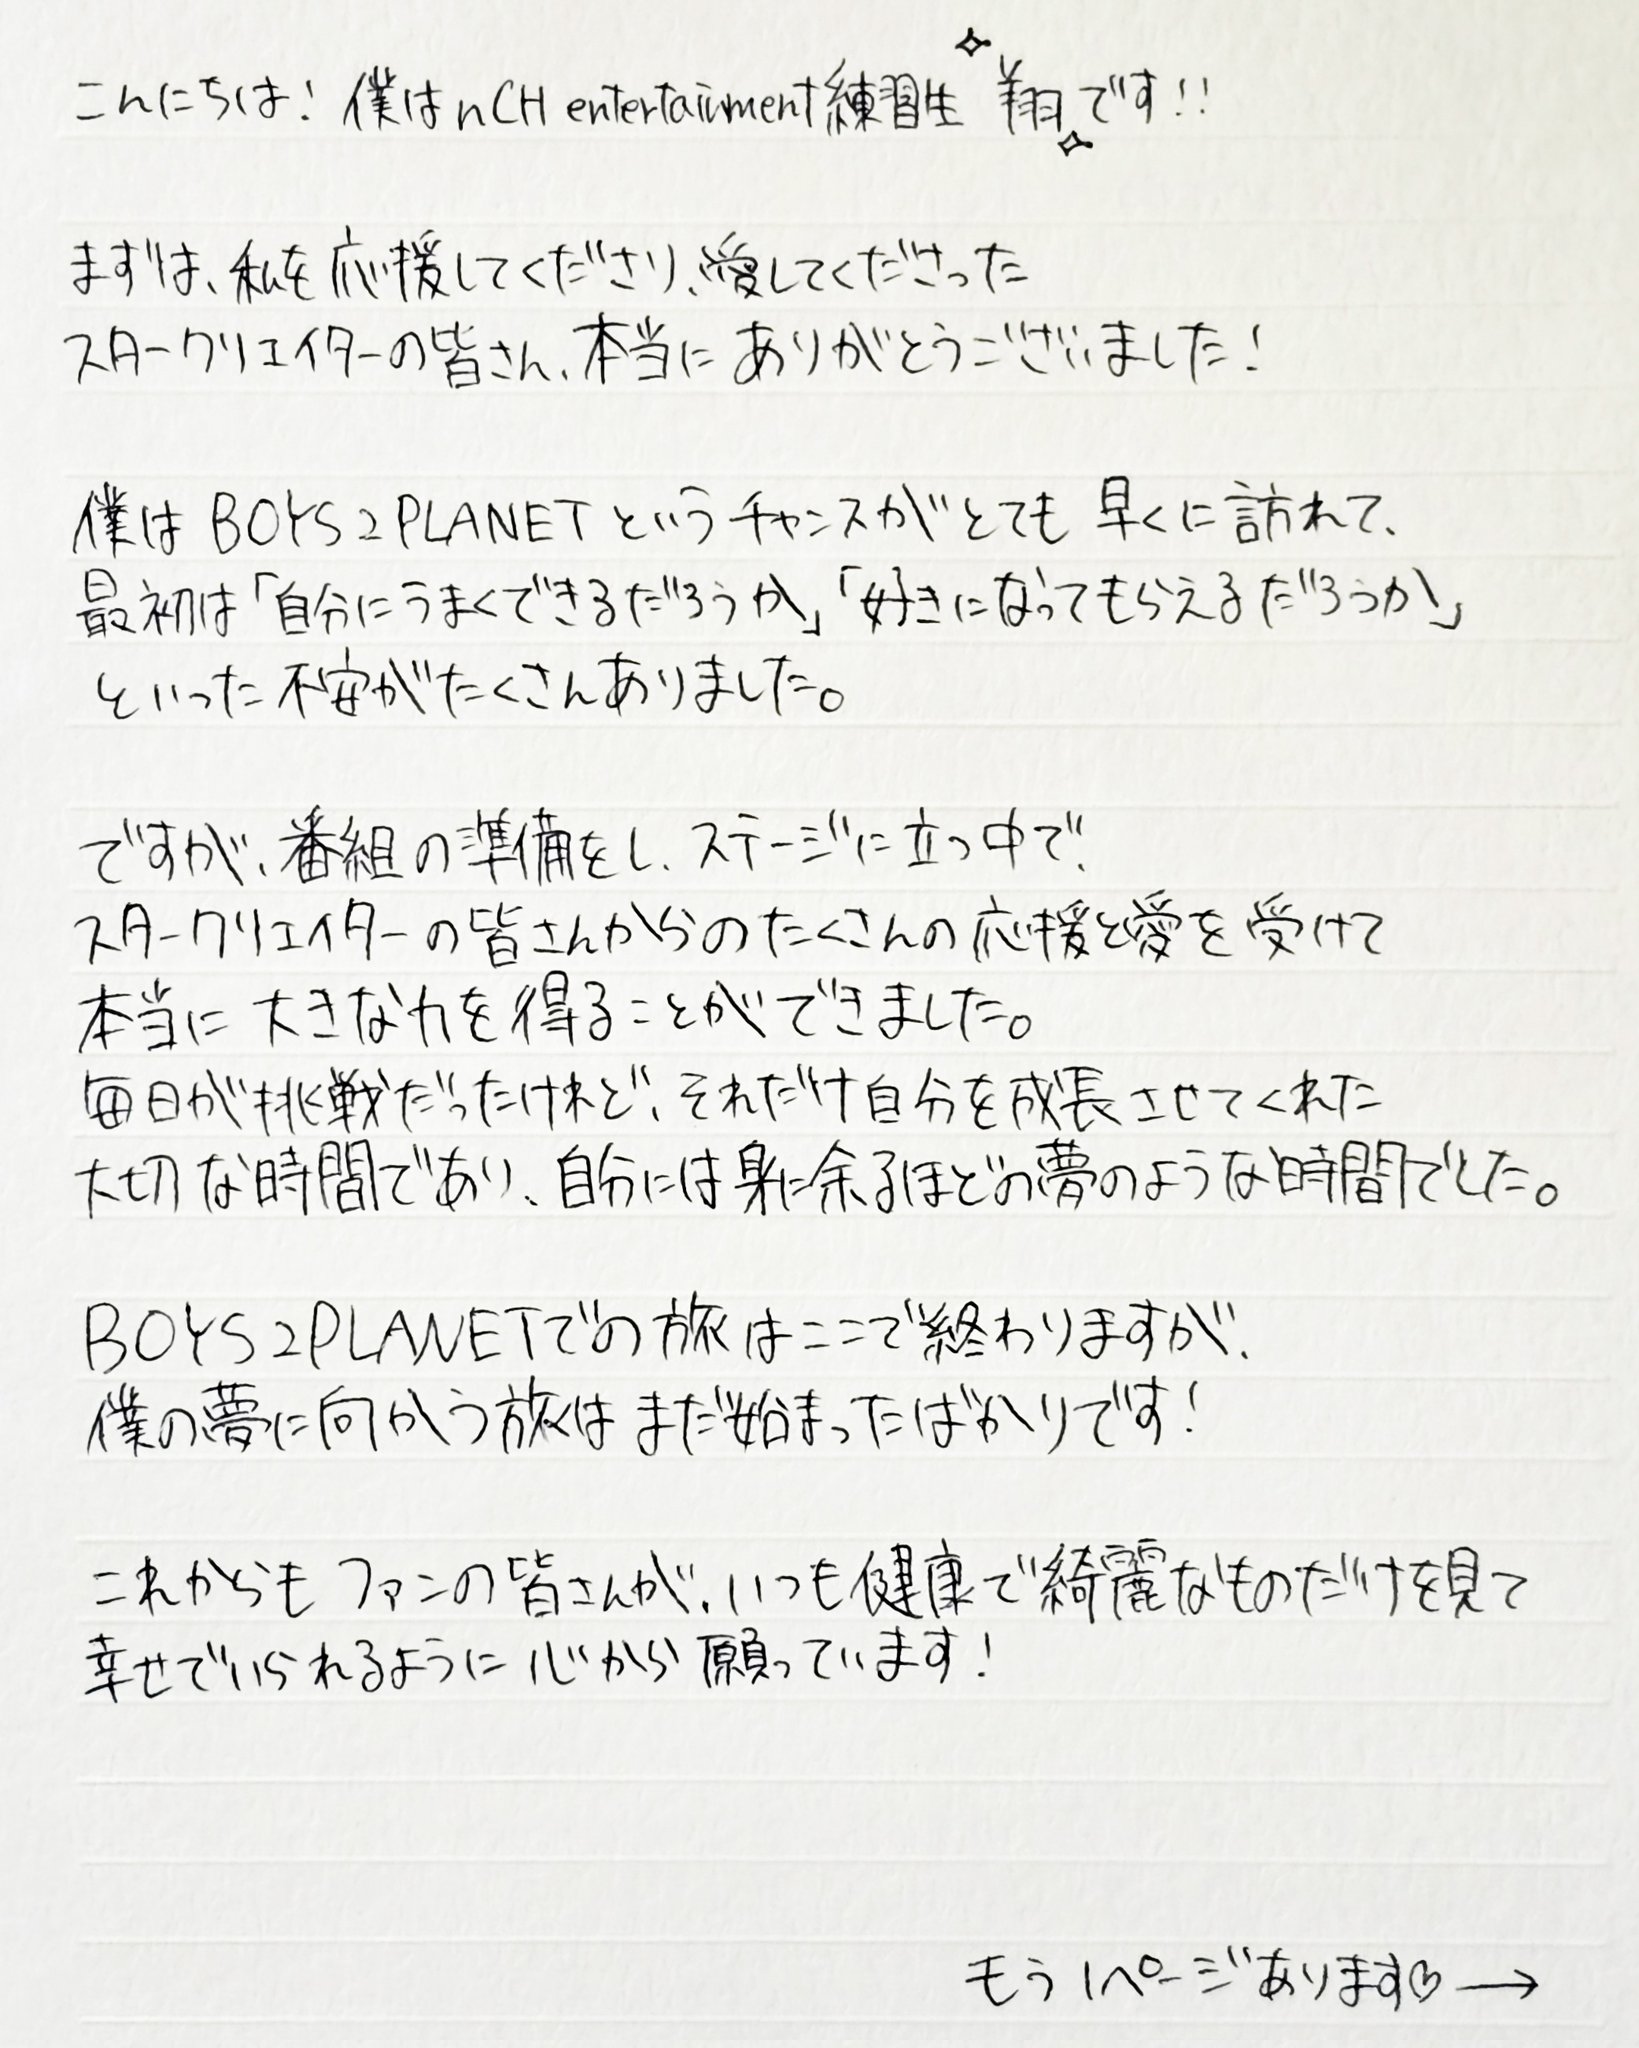 こんにちは! 僕はnCH entertainment練習生 翔です!!
まずは、私を応援してくださり、愛してくださった
スタークリエイターの皆さん、本当にありがとうございました!
僕は BOYS 2 PLANET というチャンスがとても 早くに訪れて、
最初は「自分にうまくできるだろうか」「好きになってもらえるだろうか」
といった不安がたくさんありました。
ですが、番組の準備をし、ステージに立つ中で、
スタークリエイターの皆さんからのたくさんの応援と愛を受けて
本当に大きな力を得ることができました。
毎日が挑戦だったけれど、それだけ自分を成長させてくれた
大切な時間であり、自分には身に余るほどの夢のような時間でした。
BOYS 2 PLANETでの旅はここで終わりますが、
僕の夢に向かう旅はまだ始まったばかりです!
これからもファンの皆さんが、いつも健康で綺麗なものだけを見て
幸せでいられるように心から願っています!
もう1ページあります♡→